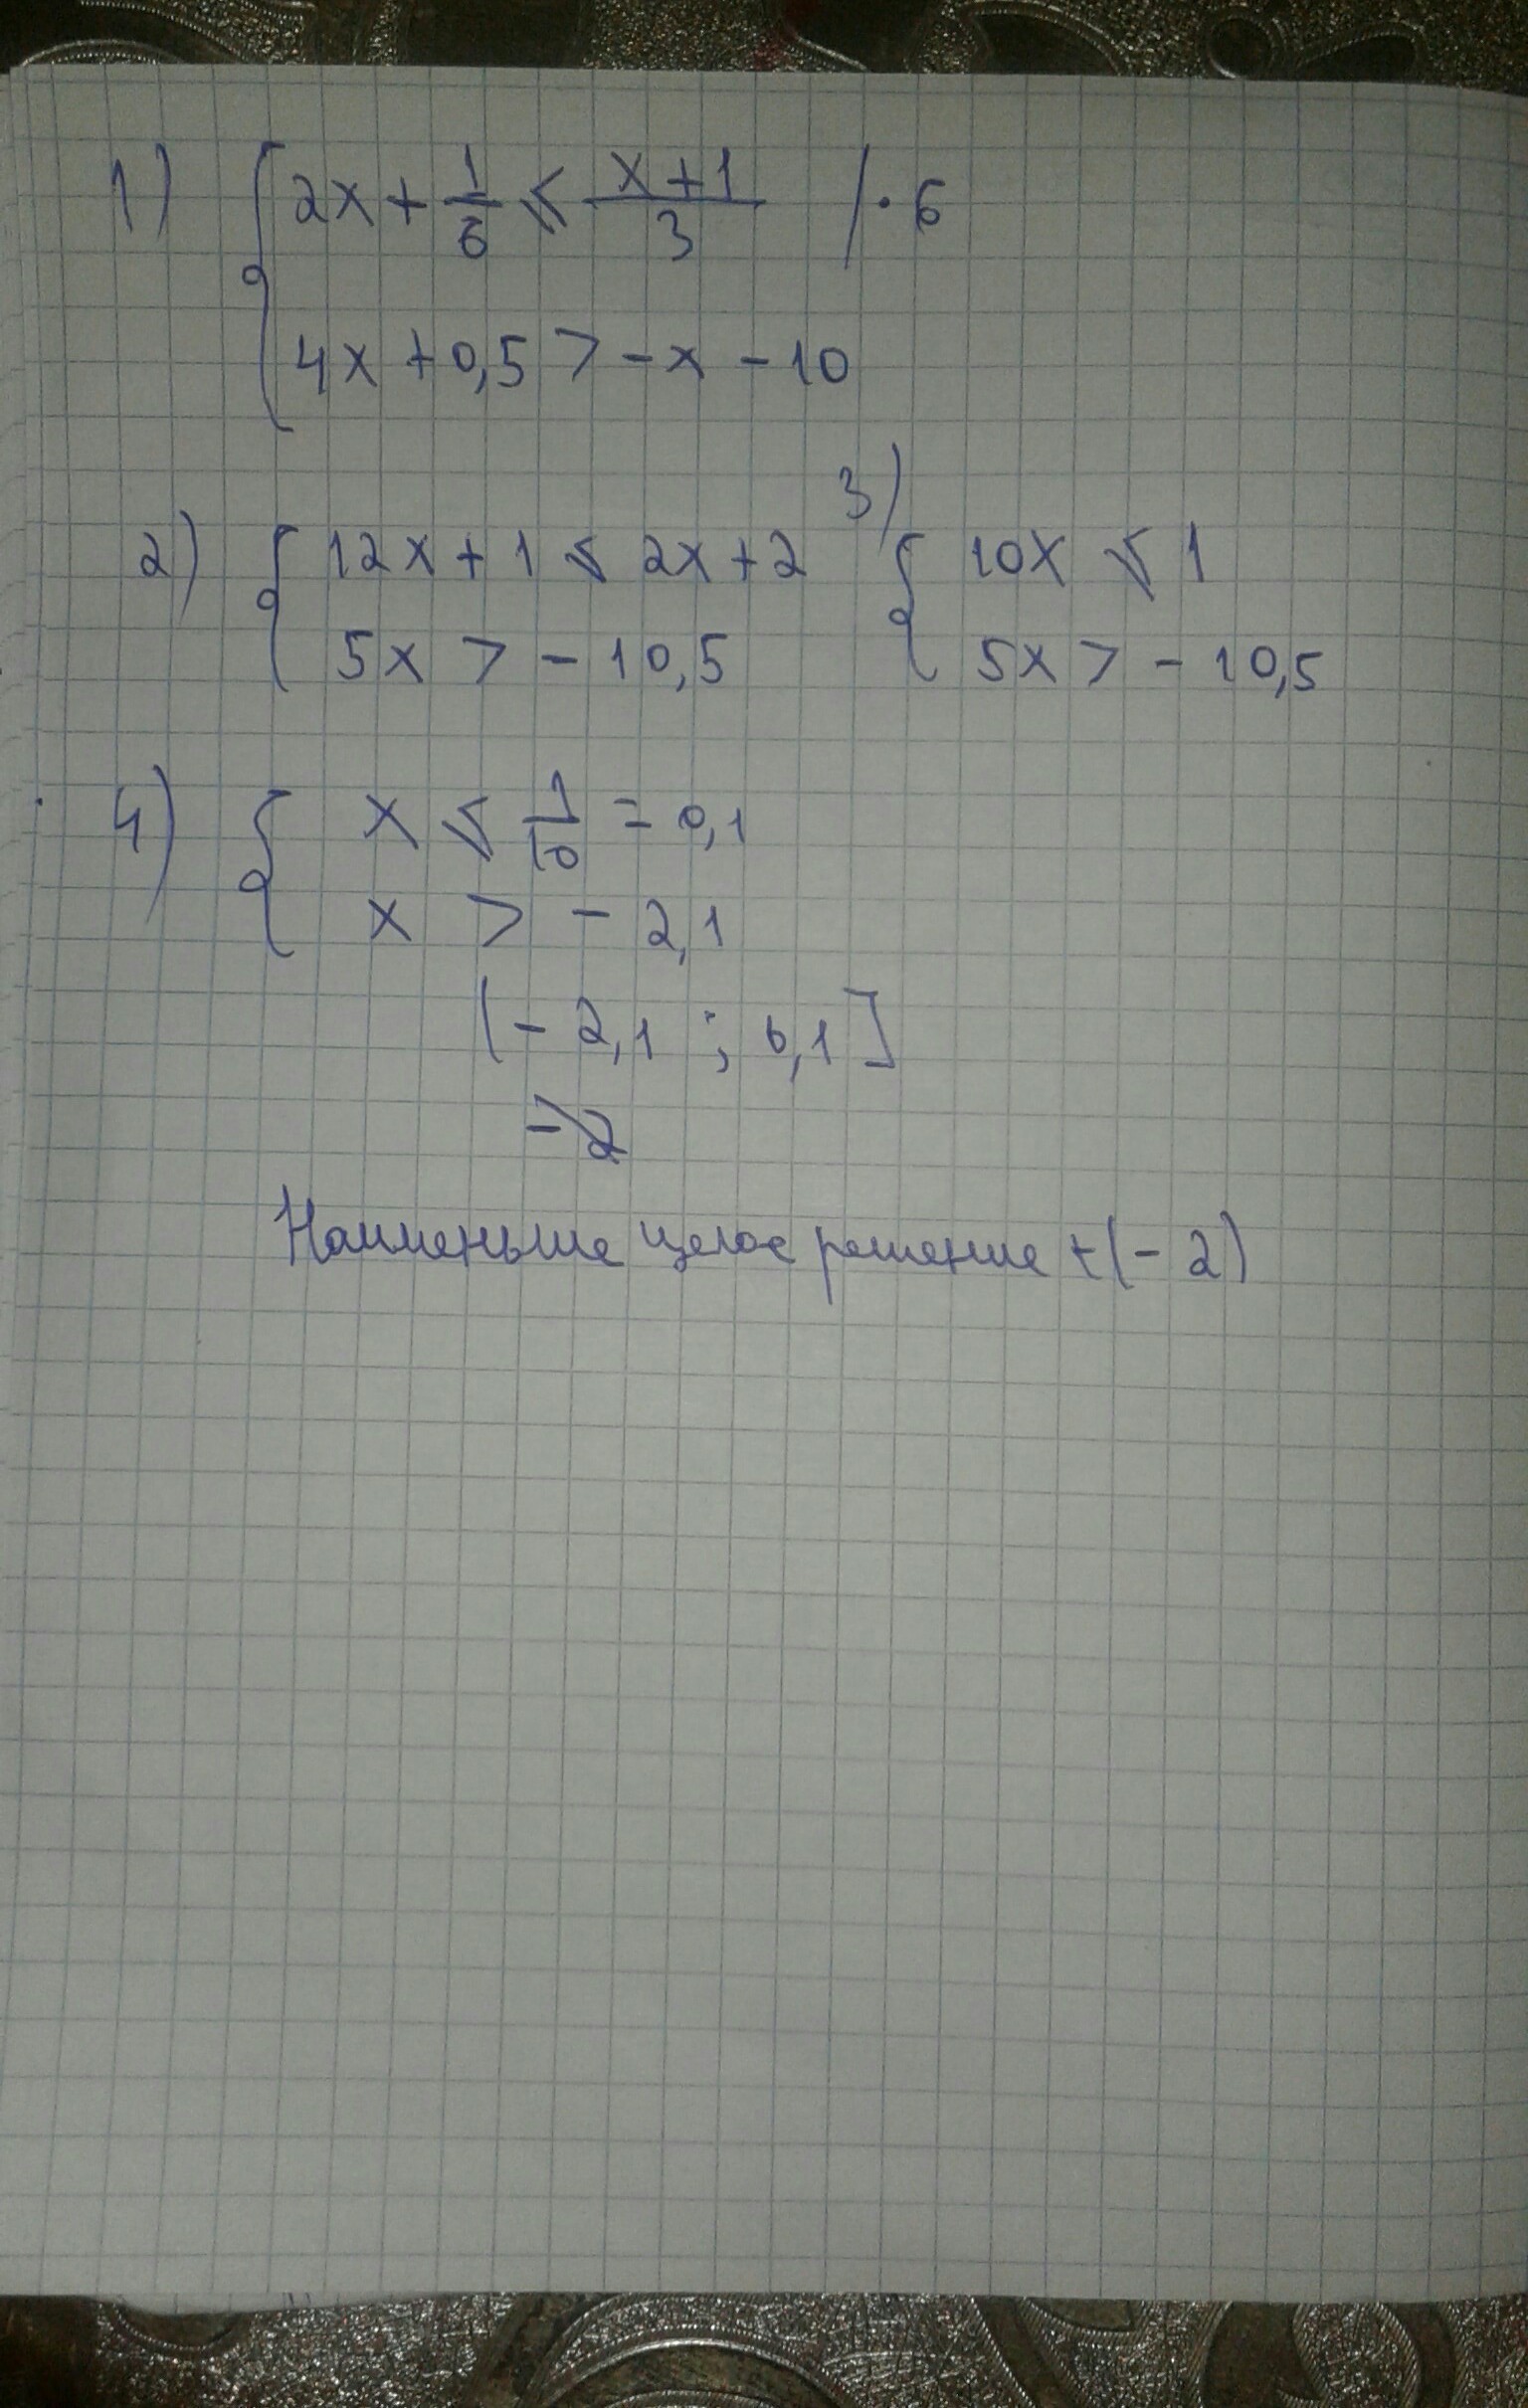 1) { 2x + 1/6 ≤ (x + 1)/3 / · 6
4x + 0,5 > - x - 10
2) { 12x + 1 ≤ 2x + 2
5x > - 10,5
3) { 10x ≤ 1
5x > - 10,5
4) { x ≤ 1/10 = 0,1
x > - 2,1
(- 2,1 ; 0,1]
-2
Наименьше целое решение (- 2)